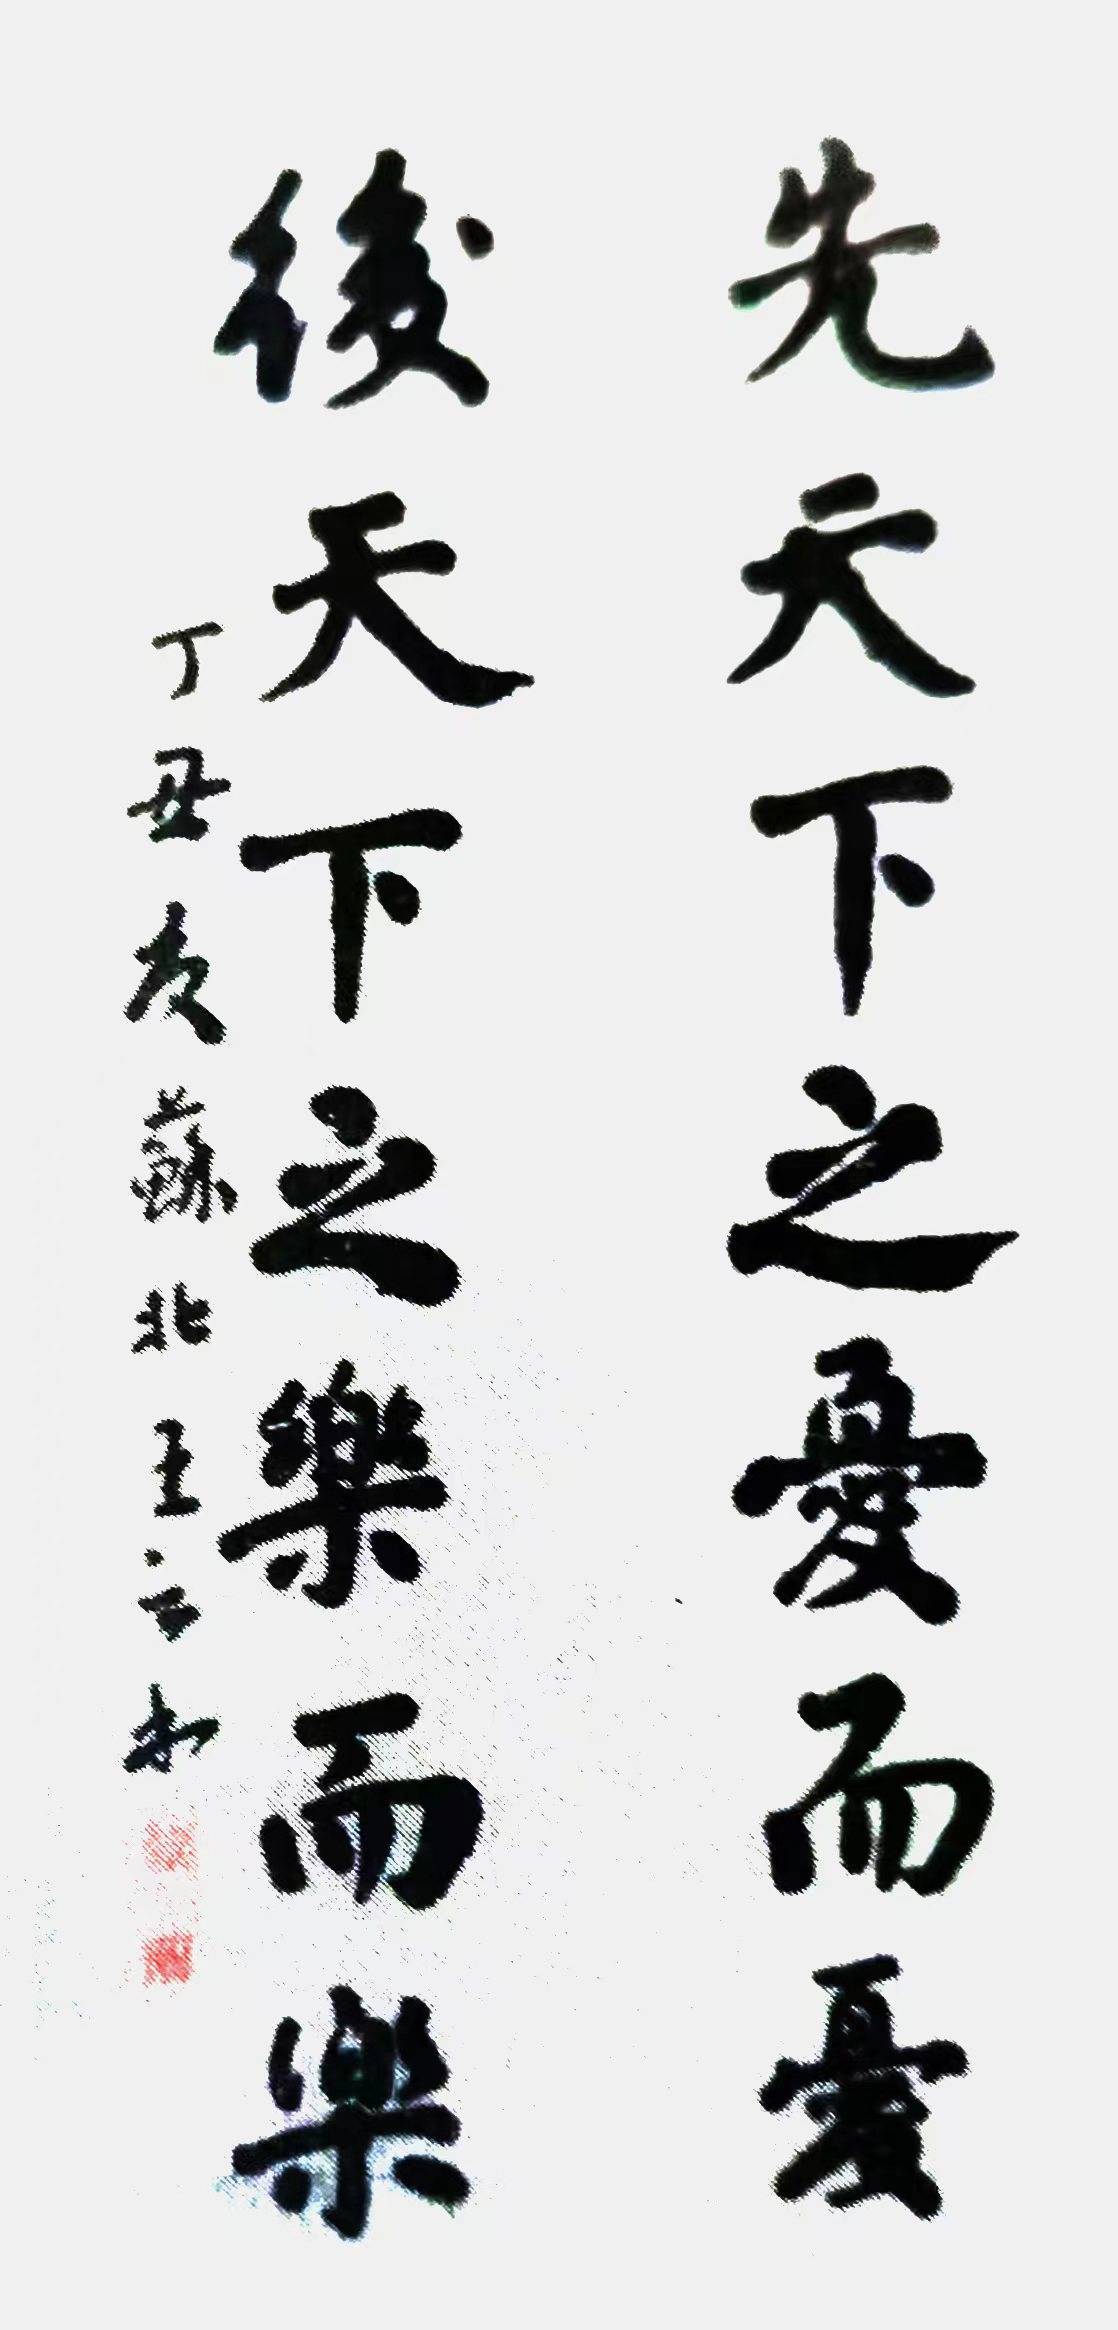 先天下之憂而憂
後天下之樂而樂
丁丑夏蘇北王云